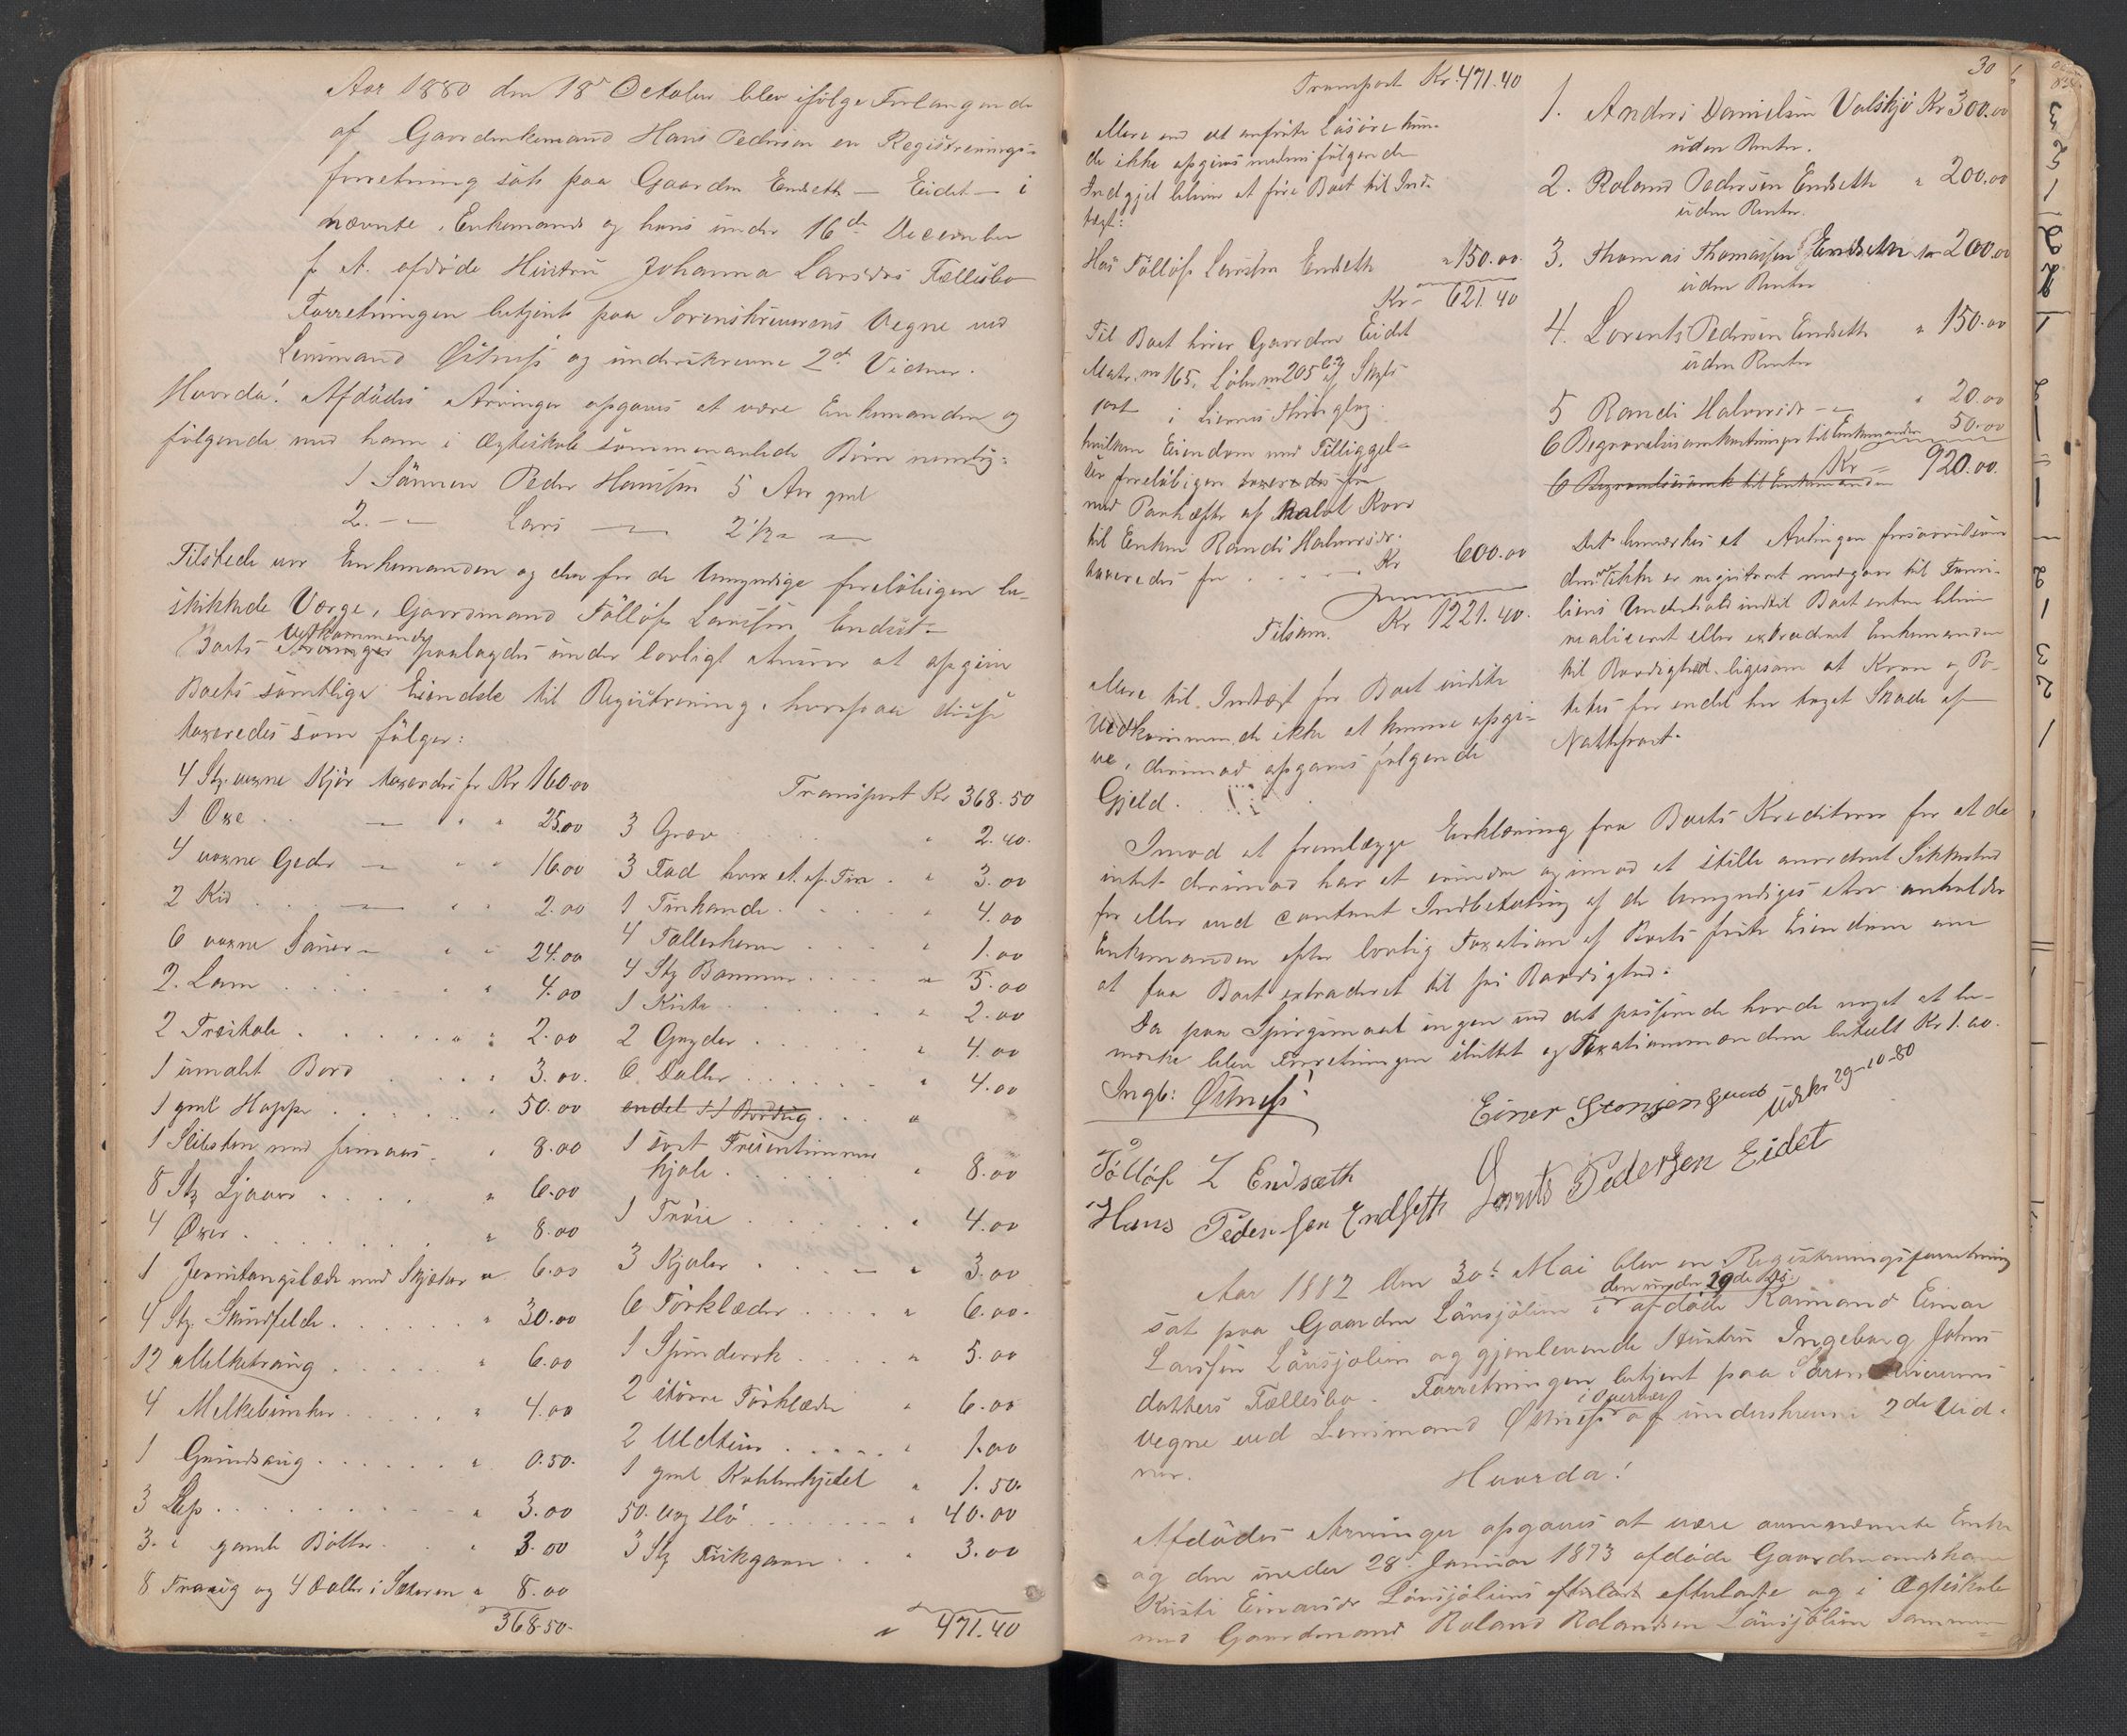 Aar 1880 den 18de October blev ifølge Forlangende
af Gaardenkemand Hans Pedersen en Registrerings-
forretning sat paa Gaarden Endseth - Eidet - i
nævnte Enkemands og hans under 16de December
f. A. afdøde Hustru Johanna Larsdrs Fællesbo
Forretningen betjent paa Sorenskriverens Vegne ved
Lensmand Østness og underskrevne 2de Vidner.
Hvorda! Afdødes Arvinger opgaves at være Enkemanden og
følgende med ham i Ægteskab sammenavlede Børn nemlig:
1 Sønnen Peder Hansen 5 Aar gml
2. -"- Lars -"- 2 1/2 " -"-
Tilstede var Enkemanden og den for de Umyndige foreløbigen be-
skikkede Værge, Gaardmand Tølløf Larssen Endset-
Boets Arvinger Vedkommende paalagdes under lovligt Ansvar at opgive
Boets samtlige Eiendele til Registrering, hvorpaa disse
taxeredes som følger:
4 Stk. voxne Kjør taxerdes for Kr 160.00
1 Oxe . . " 25.00
4 voxne Geder " 16.00
2 Kid . . " 2.00
6 voxne Sauer " 24.00
2. Lam . . . " 4.00
2 Træstole . . . " 2.00
1 umalt Bord . . . " 3.00.
1 gml Hoppe . . . " 50.00
1 Slibesten med " 8.00
8 Stk Ljaaer . . . " 6.00
4 Øxer . . . " 8.00
1 Jernstangslæde med Skjæker " 6.00
4 Stk. Skindfelde . . . " 30.00
12 Melketraug . . . " 6.00
4 Melkebunker . . . " 4.00
1 Grindsaug . . . " 0.50.
3 Løp . . . " 3.00
3. gamle Bøtter . . " 3.00
8 Traug og 4 Daller i Sæteren " 8.00
368.50.
Transport Kr 368.50
3 Grev . . " 2.40.
3 Fad hvor et af Tin . " 3.00
1 Tinkande . . . " 4.00
4 Tallerkener . . . " 1.00
4 Stk Bommer . . . " 5.00
1 Kiste . . . " 2.00
2 Gryder . . . " 4.00
6. Daller . . . " 4.00
endel . . . "
1 sort Fruentimmer
kjole . . . " 8.00
1 Trøie . . . " 4.00
3 Kjoler . . . " 3.00
6 Tørklæder . . . " 6.00.
1 Spinderok . . . " 5.00
2 større Tørklæder " 6.00
2 Uldteiner . . . " 1.00
1 gml Kobberkjedel " 1.50.
50. Vog Hø . . . " 40.00
3 Stk Fiskgarn . . " 3.00
" 471.40
30
Transport Kr. 471.40
Mere end det anførte Løsøre kun-
de ikke opgives medens følgende
Indgjeld bliver at føre Boet til Ind-
tægt:
Hos Tølløf Larssen Endseth " 150.00.
Kr - 621.40
Til Boet hører Gaarden Eidet
Matr. no 165, Løbe no 205 af Skyld
ort i Liernes Thinglag.
hvilken Eiendom med Tilliggel-
ser foreløbigen taxeredes for
med Paahæfte af Kaar
til Enken Randi Halvorsdr.
taxeredes for . . . Kr 600.00
Tilsam. Kr 1221.40.
Mere til Indtægt for Boet vidste
Vedkommende ikke at kunne opgi-
ve, derimod opgaves følgende
Gjeld.
1. Anders Danielsen Valskjø Kr 300.00
uden Renter.
2. Roland Pedersen Endseth " 200.00
uden Renter.
3. Thomas Thomassen Endseth " 200.00
uden Renter
4. Lorents Pedersen Endseth " 150.00
uden Renter
5 Randi Halvorsdr -"- " 20.00
6 Begravelsesomkostninger til Enkemanden 50.00
6 Begravelsesomk til Enkemanden
Kr = 920.00.
Det bemærkes at Avlingen forsaavidt som
den ikke er registreret medgaar til Fami-
liens Underhold indtil Boet enten bliver
realiseret eller extraderet Enkemanden
til Raadighed, ligesom at Korn og Po-
teter for endel har taget Skade af
Nattefrost.
Imod at fremlægge Erklæring fra Boets Kreditorer for at de
intet derimod har at erindre og imod at stille anordnet Sikkerhed
for eller ved contant Indbetaling af de Umyndiges Arv anholder
Enkemanden efter lovlig Taxation af Boets faste Eiendom om
at faa Boet extraderet til fri Raadighed.
Da paa Spørgsmaal ingen ved det passerede havde noget at be-
mærke blev Forretningen sluttet og Taxationsmændene betalt Kr 1.00.
Ingb: Østness
Einer
Udskr 29-10-80
Tølløf L Endsæth
Lornts Pedersen Eidet
Hans Pedersen Endseth
Aar 1882 den 30te Mai blev en Registreringsforretning
sat paa Gaarden Lånsjølien i den under 29de ds. afdøde Kaarmand Einar
Larssen Lånsjølien og gjenlevende Hustru Ingeborg Johns
datters Fællesbo. Forretningen betjent paa Sorenskriverens
Vegne ved Lensmand Østness i Overvær af underskrevne 2de Vid-
ner.
Hvorda!
Afdødes Arvinger opgaves at være ovennævnte Enke
og den under 28. Januar 1873 afdøde Gaardmandskone
Kirsti Einarsdr Lånsjøliens efterladt efterladte og i Ægteskab
med Gaardmand Roland Rolandsen Lånsjølien sammen=